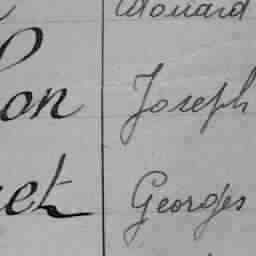 Edouard
on Joseph
et Georges